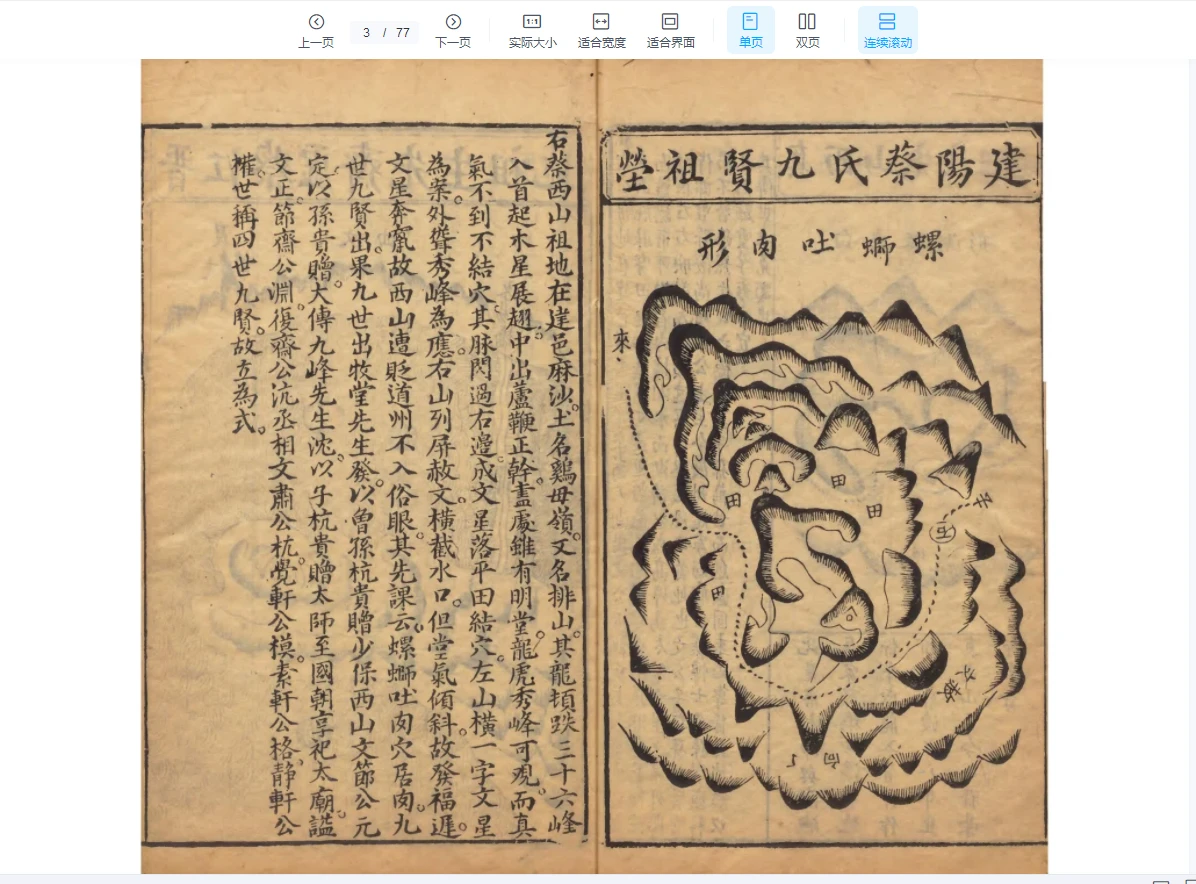 上一页
3 / 77
下一页
1:1
实际大小
适合宽度
适合界面
单页
双页
连续滚动
建陽蔡氏九賢祖塋
螺螄吐肉形
來
田
田
田
田
向
右蔡西山祖地在崖邑麻沙土名鷄母嶺又名排山其龍頓跌三十六峰
入首起木星展翅中出蘆鞭正幹盡處雖有明堂龍虎秀峰可覌而真
氣不到不結穴其脉閃過右邉成文星落平田結穴左山横一字文星
為案外聳秀峰為應右山列屏赦文横截水口但堂氣傾斜故發福遲
文星奔竄故西山遭貶道州不入俗眼其先課云螺螄吐肉穴居肉九
世九賢出果九世出牧堂先生發以曾孫杭貴贈少保西山文節公元
定以孫貴贈大傳九峰先生沈以子杭貴贈太師至國朝享祀太廟謚
文正節齋公淵復齋公沆丞相文肅公杭覺軒公模素軒公格静軒公
權世稱四世九賢故立為式